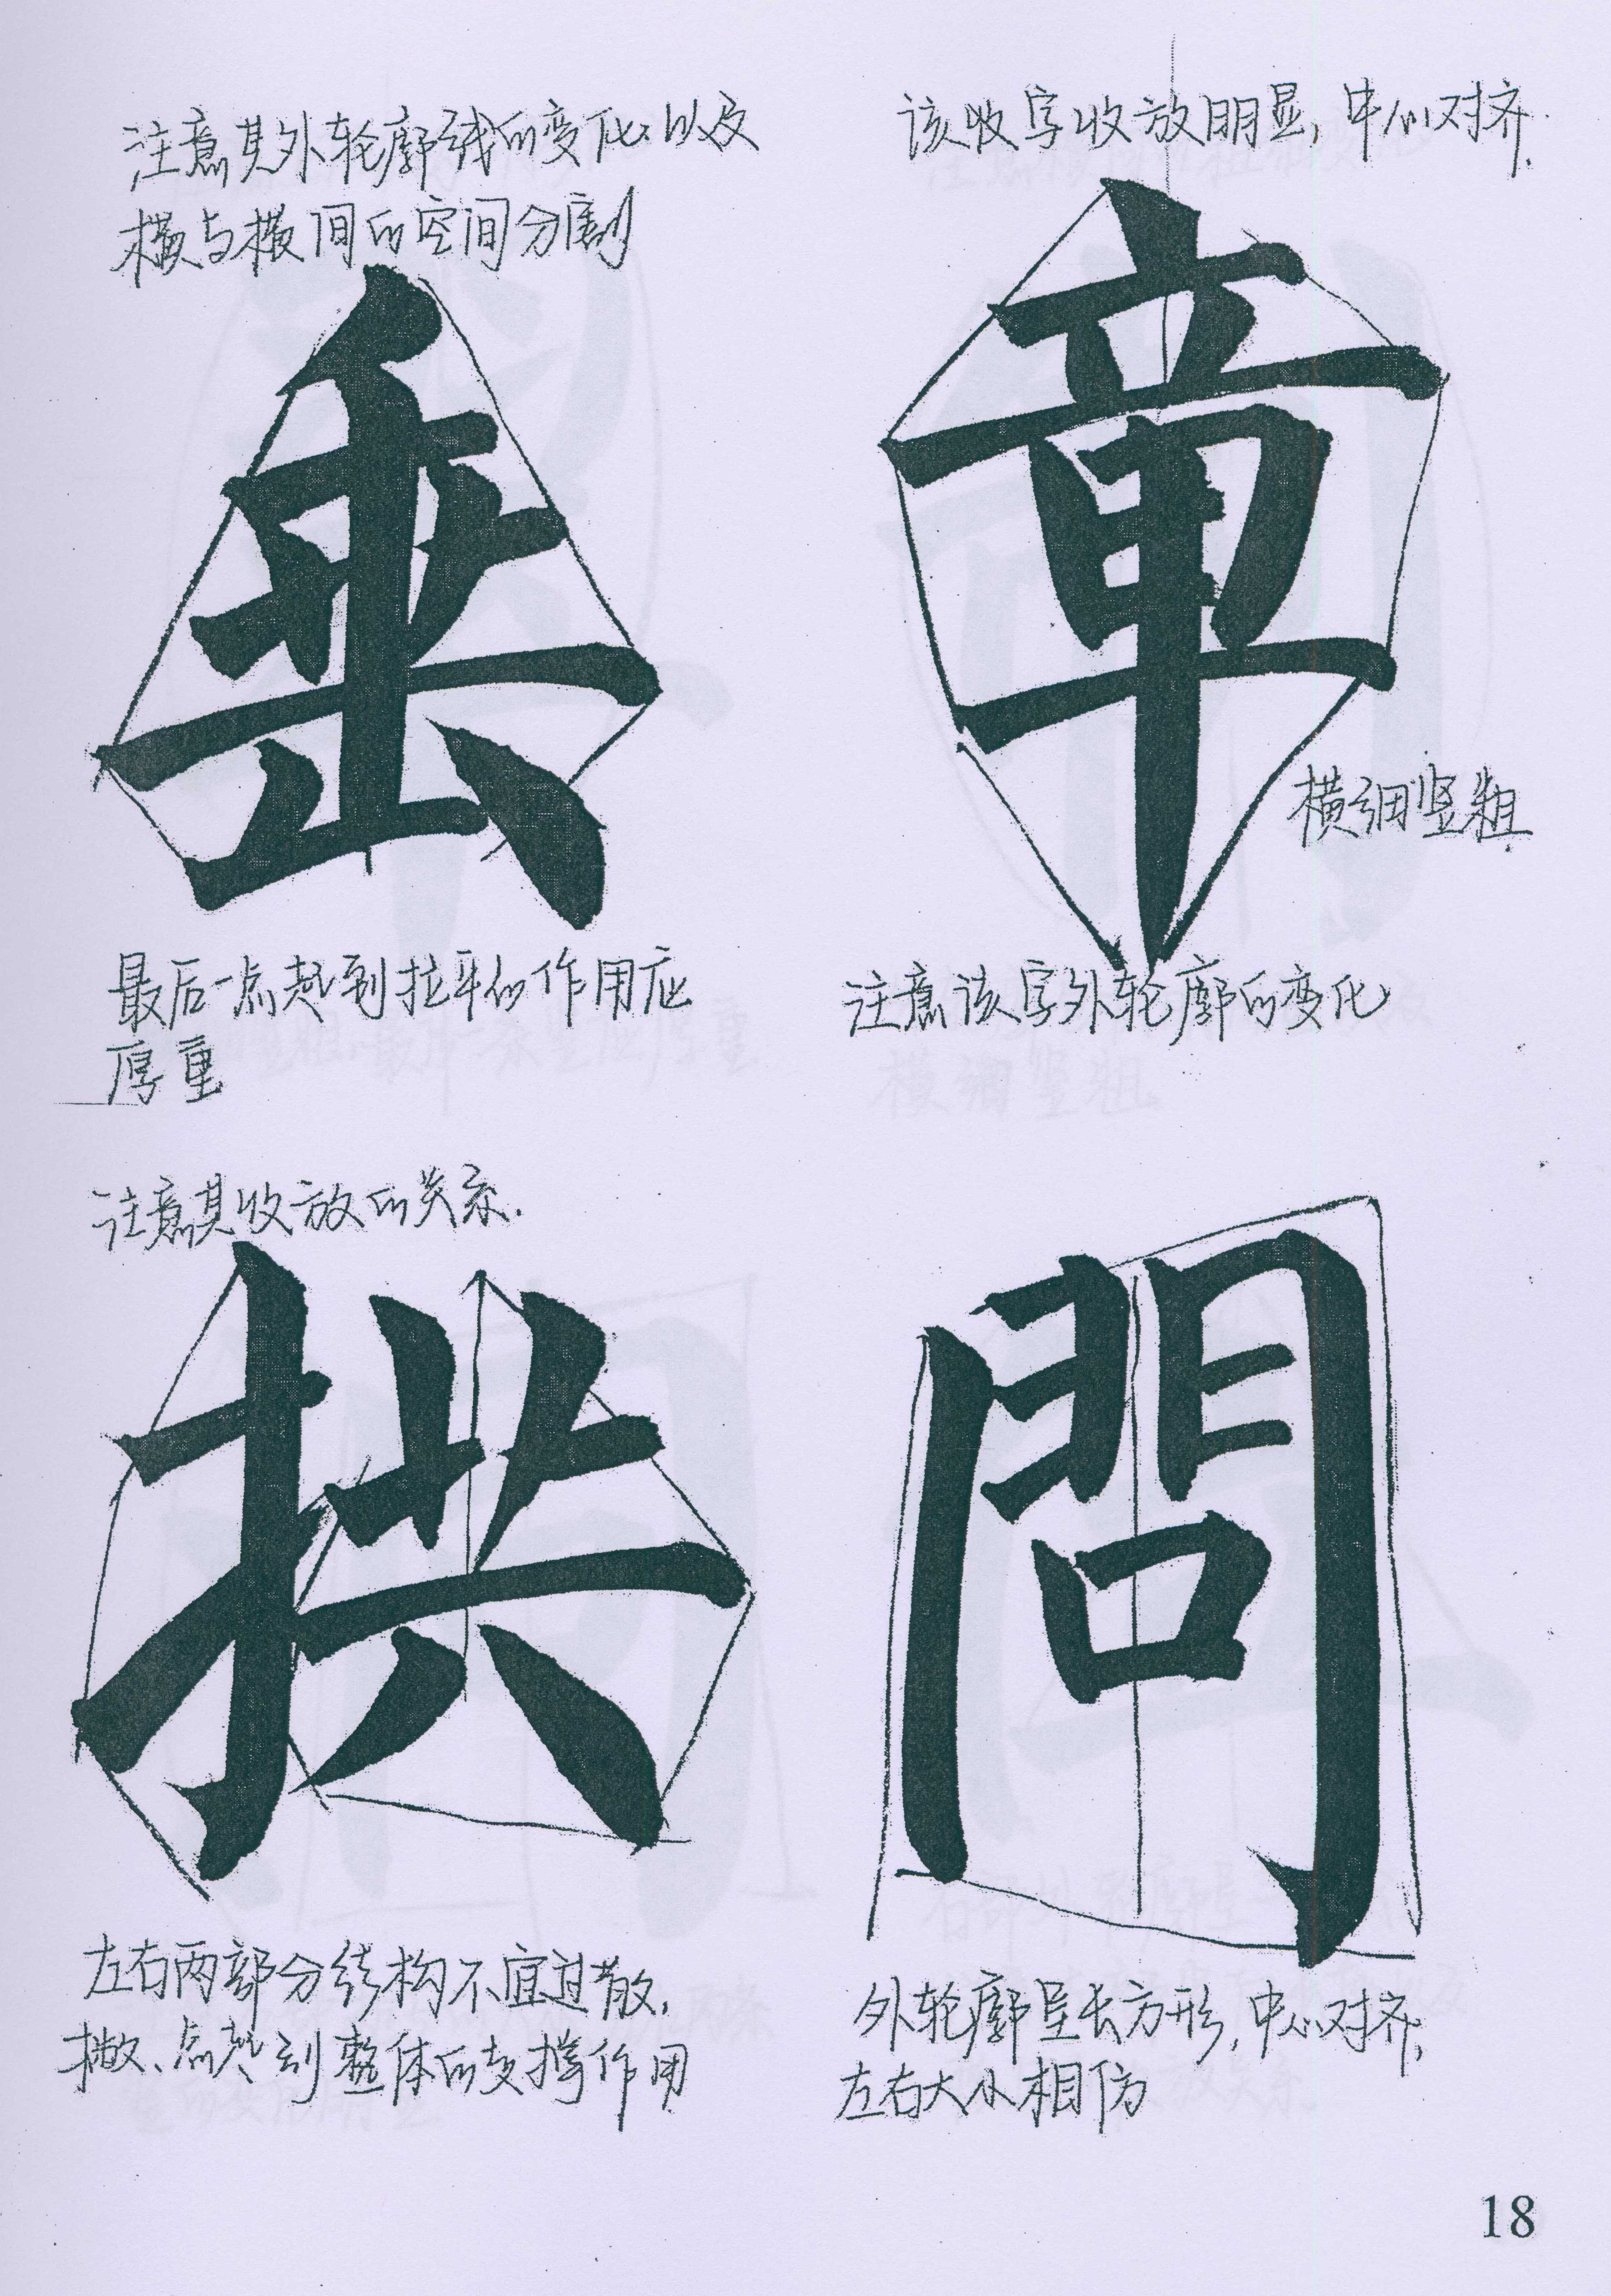 注意其外轮廓线的变化以及
横与横间的空间分割
垂
最后一点起到拉平的作用应
厚重
该收字收放明显，中心对齐.
章
横细竖粗
注意该字外轮廓的变化
注意其收放的关系.
拱
左右两部分结构不宜过散，
撇、点起到整体的支撑作用
問
外轮廓呈长方形，中心对齐，
左右大小相仿
18